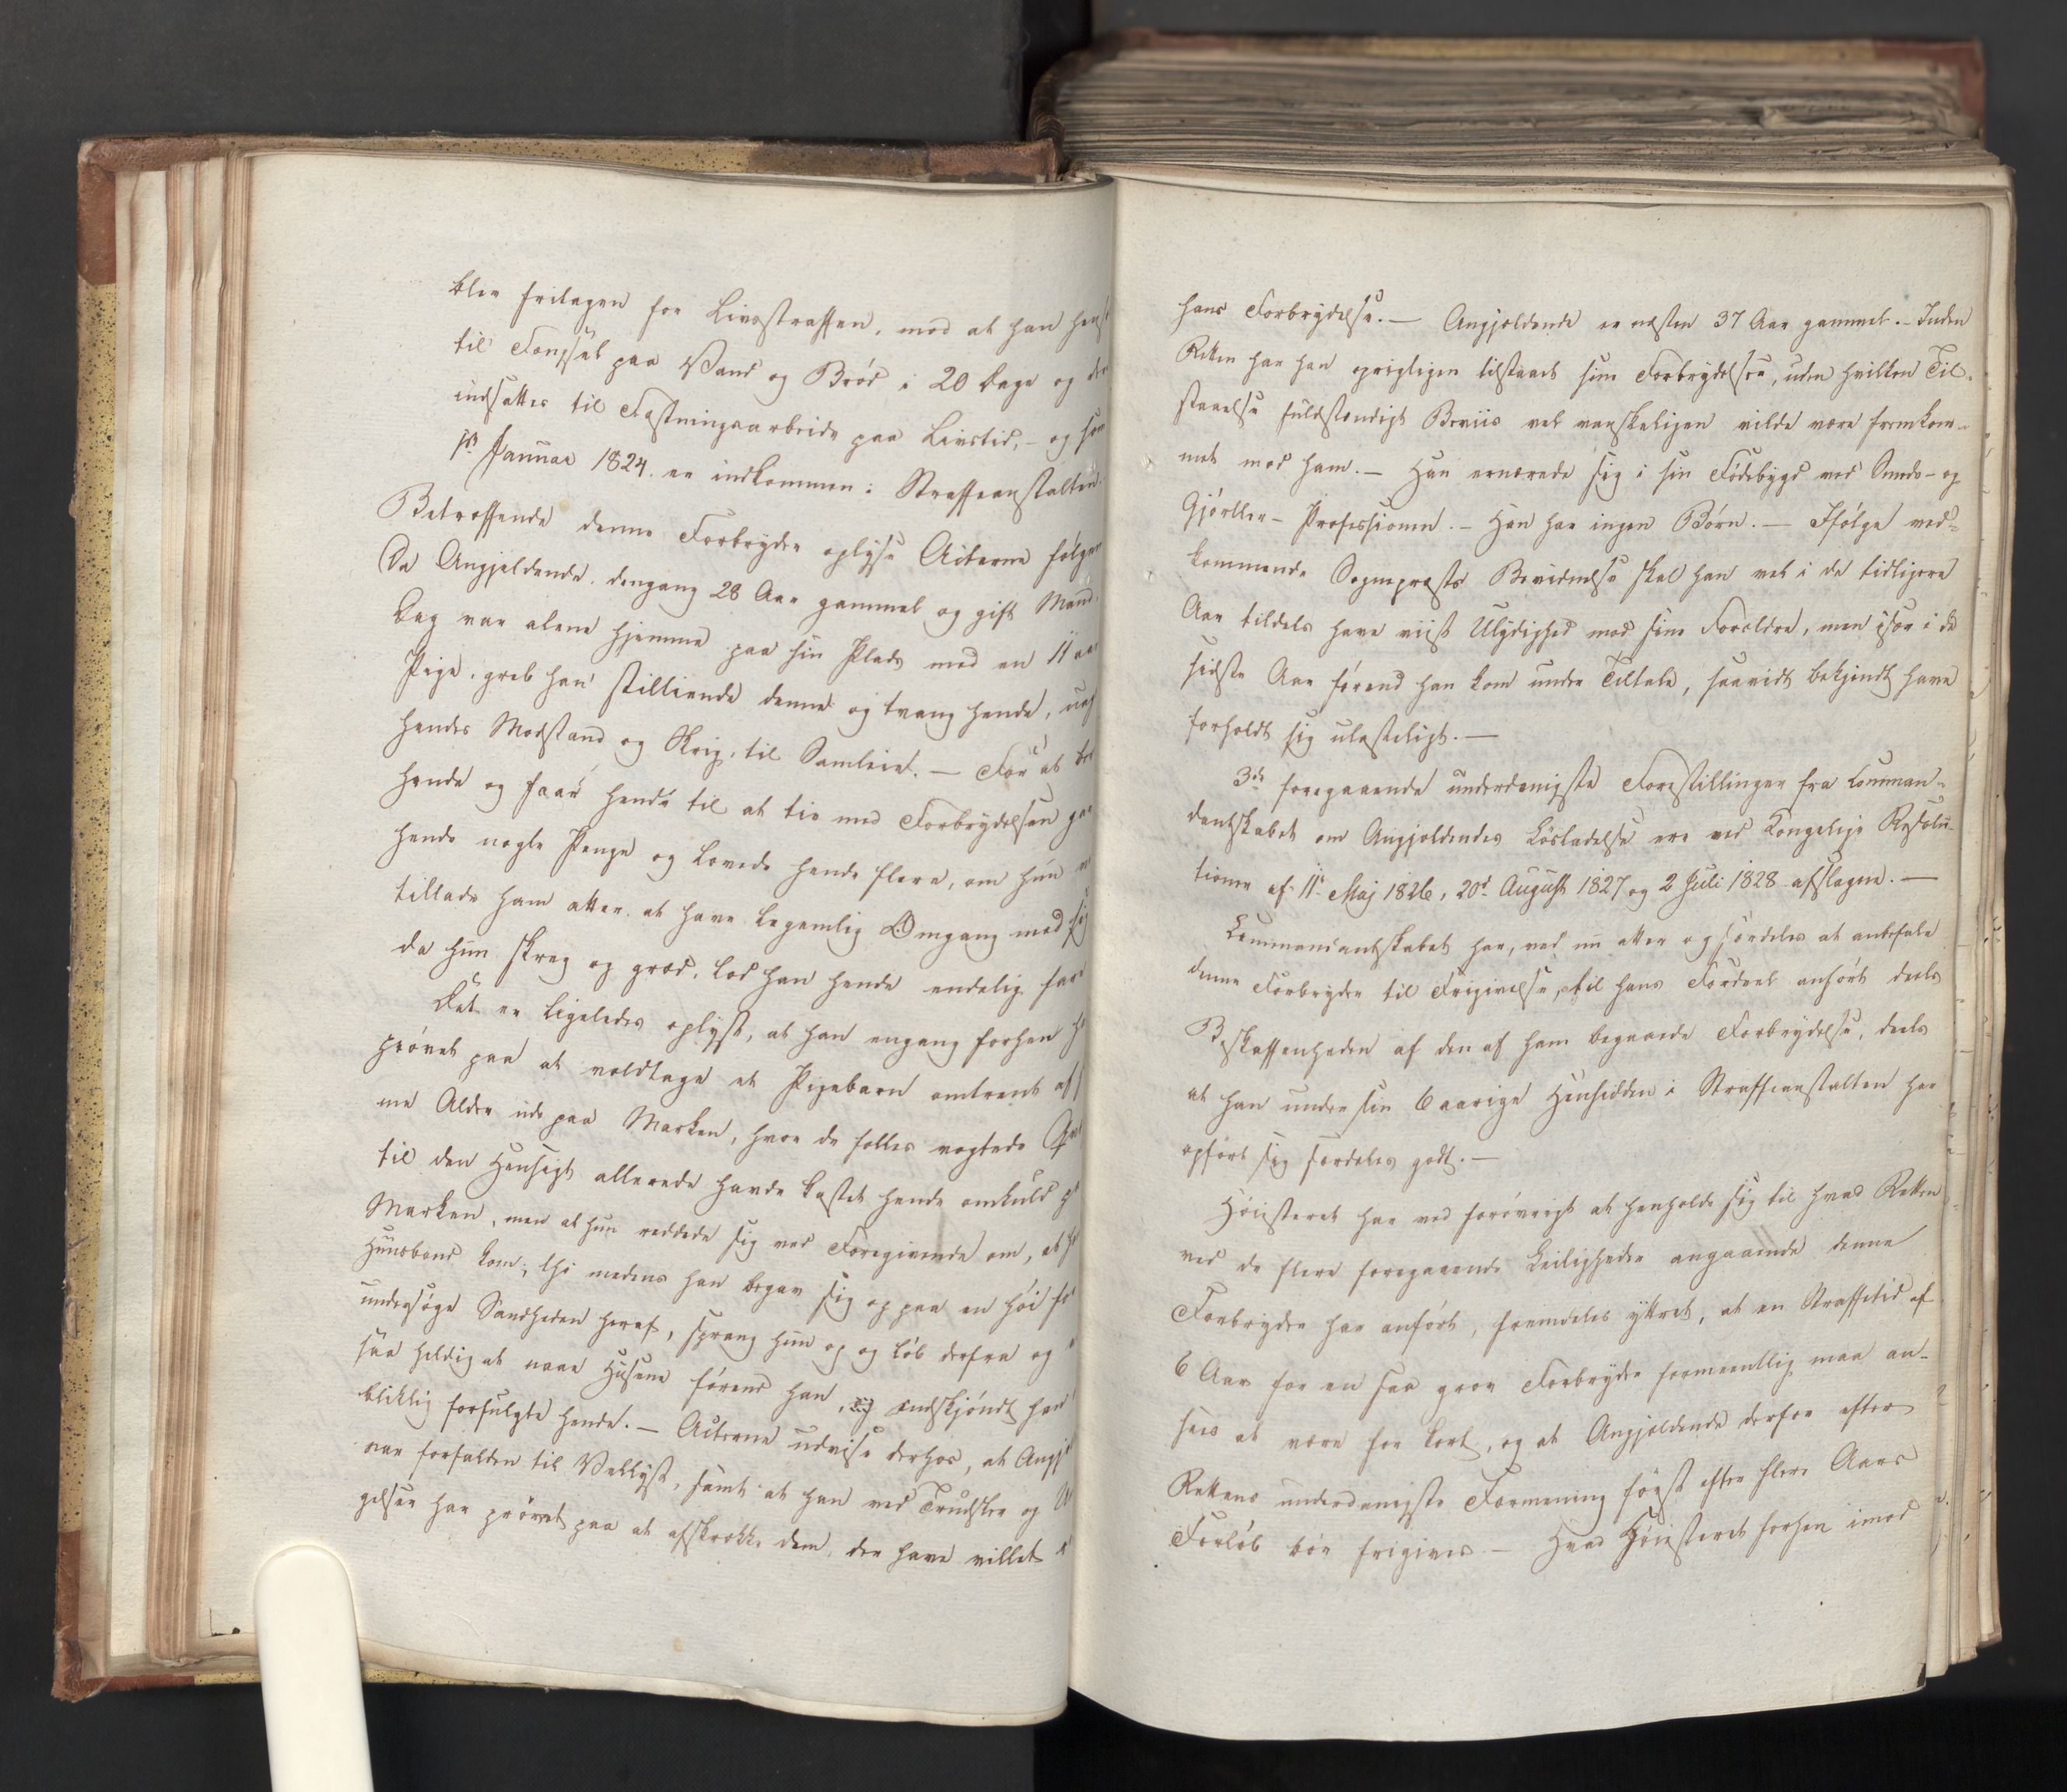 blev fritagen for Livsstraffen, mod at han hens
til Fængsel paa Vand og Brød i 20 Dage og der
indsættes til Fæstningsarbeide paa Livstid, – og som
Januar 1824 er indkommen i Straffeanstalten.
Betræffende denne Forbryder oplyse Acterne følgen
Da Angjeldende, dengang 28 Aar gammel og gift Mand,
Dag var alene hjemme paa sin Plads med en 11 aar
Pige, greb han stiltiende denne og tvang hende, uag
hendes Modstand og Skrig, til Samleie. – For at be
hende og faae hende til at tie med Forbrydelsen ga
hende nogle Penge og lovede hende flere, om hun
tillade ham atter at have legemlig Omgang med sig
da hun skreg og græd, lod han hende endelig fare
Det er ligeledes oplyst, at han engang forhen h
prøvet paa at voldtage et Pigebarn omtrent af s
me Alder ude paa Marken, hvor de fælles vogtede
til den Hensigt allerede havde kastet hende omkuld p
Marken, men at hun reddede sig ved Foregivende om, at h
Huusbond kom; thi medens han begav sig op paa en Høi fo
undersøge Sandheden heraf, sprang hun op og løb derfra og
saa heldig at naae Husene førend han, endskjøndt han
bliklig forfulgte hende. – Acterne udvise derhos, at Angj
var forfalden til Vellyst, samt at han ved Trudsler og
gelser har prøvet paa at afskrække dem, der have villet
hans Forbrydelse. – Angjeldende er næsten 37 Aar gammel. – Inden
Retten har han oprigtigen tilstaaet sine Forbrydelser, uden hvilken Til-
staaelse fuldstændigt Beviis vel vanskeligen vilde være fremkom-
met mod ham. – Han ernærede sig i sin Fødebygd ved Smede- og
Gjørtler-Professionen. – Han har ingen Børn. – Ifølge ved-
kommende Sognepræsts Bevidnelse skal han vel i de tidligere
Aar tildels have viist Ulydighed mod sine Forældre, men især i de
sidste Aar førend han kom under Tiltale, saavidt bekjendt have
forholdt sig ulasteligt. –
3de foregaaende underdanigste Forestillinger fra Comman-
dantskabet om Angjeldendes Løsladelse ere ved Kongelige Resolu-
tioner af 11te Maj 1826, 20de August 1827 og 2 Juli 1828 afslagne. –
Commandantskabet har, ved nu atter og særdeles at anbefale
denne Forbryder til Frigivelse, til hans Fordeel anført deels
Beskaffenheden af den af ham begaaede Forbrydelse, deels
at han under sin 6 aarige Hensidden i Straffeanstalten har
opført sig særdeles godt. –
Høiesteret har ved forøvrigt at henholde sig til hvad Retten
ved de flere foregaaende Leiligheder angaaende denne
Forbryder har anført, fremdeles yttret, at en Straffetid af
6 Aar for en saa grov Forbryder formeentlig maa an-
sees at være for kort, og at Angjeldende derfor efter
Rettens underdanigste Formening først efter flere Aars
Forløb bør frigives. – Hvad Høiesteret forhen imod